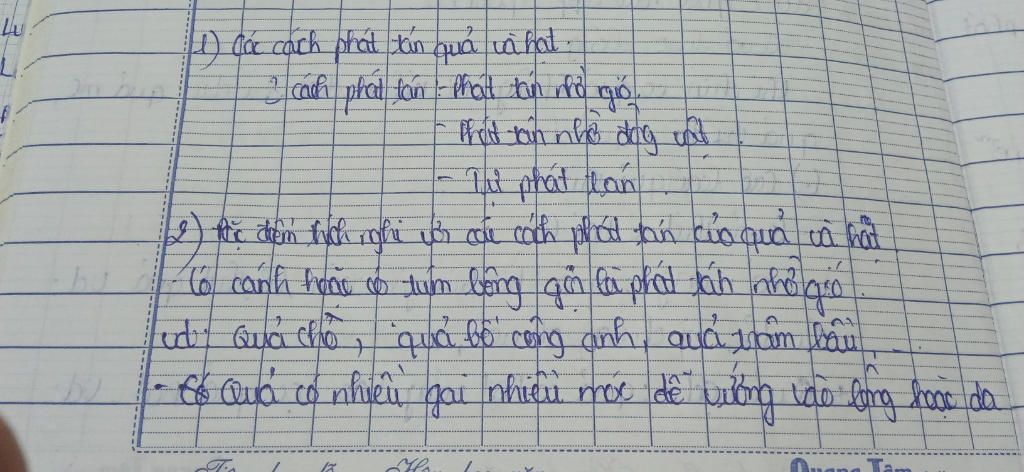 1) Các cách phát tán quả và hạt.
3 cách phát tán - Phát tán nhờ gió.
- Phát tán nhờ động vật.
- Tự phát tán.
2) Đặc điểm thích nghi với các cách phát tán của quả và hạt
- Có cánh hoặc có túm lông gọi là phát tán nhờ gió.
vd: Quả chò, quả bồ công anh, quả trâm bầu,...
- Quả có nhiều gai nhiều móc dễ vướng vào lông hoặc da
Quang Tâm